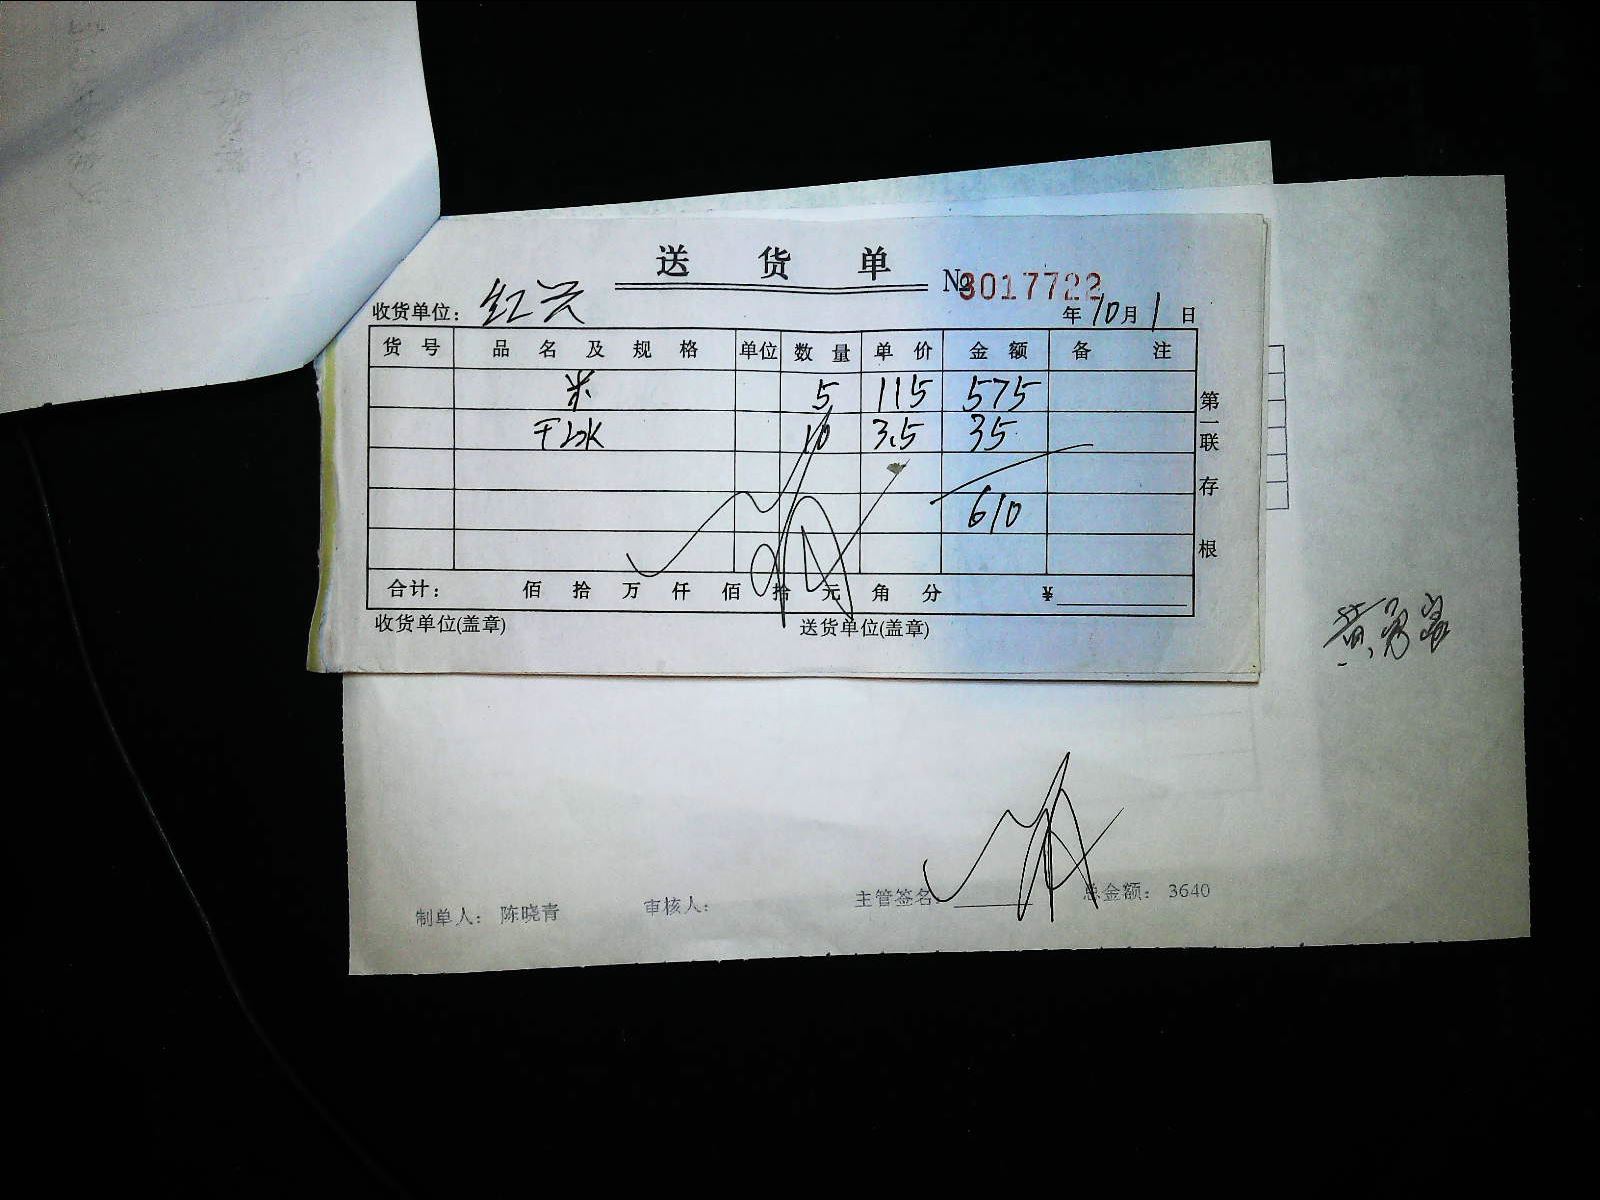 送货单
№3017722
收货单位：红兴
年10月1日
货号 品名及规格 单位 数量 单价 金额 备注
米 5 115 575
10 3.5 35
610
合计： 佰 拾 万 仟 佰 拾 元 角 分 ¥
收货单位(盖章) 送货单位(盖章)
第一联存根
制单人：陈晓青 审核人： 主管签名： 总金额：3640